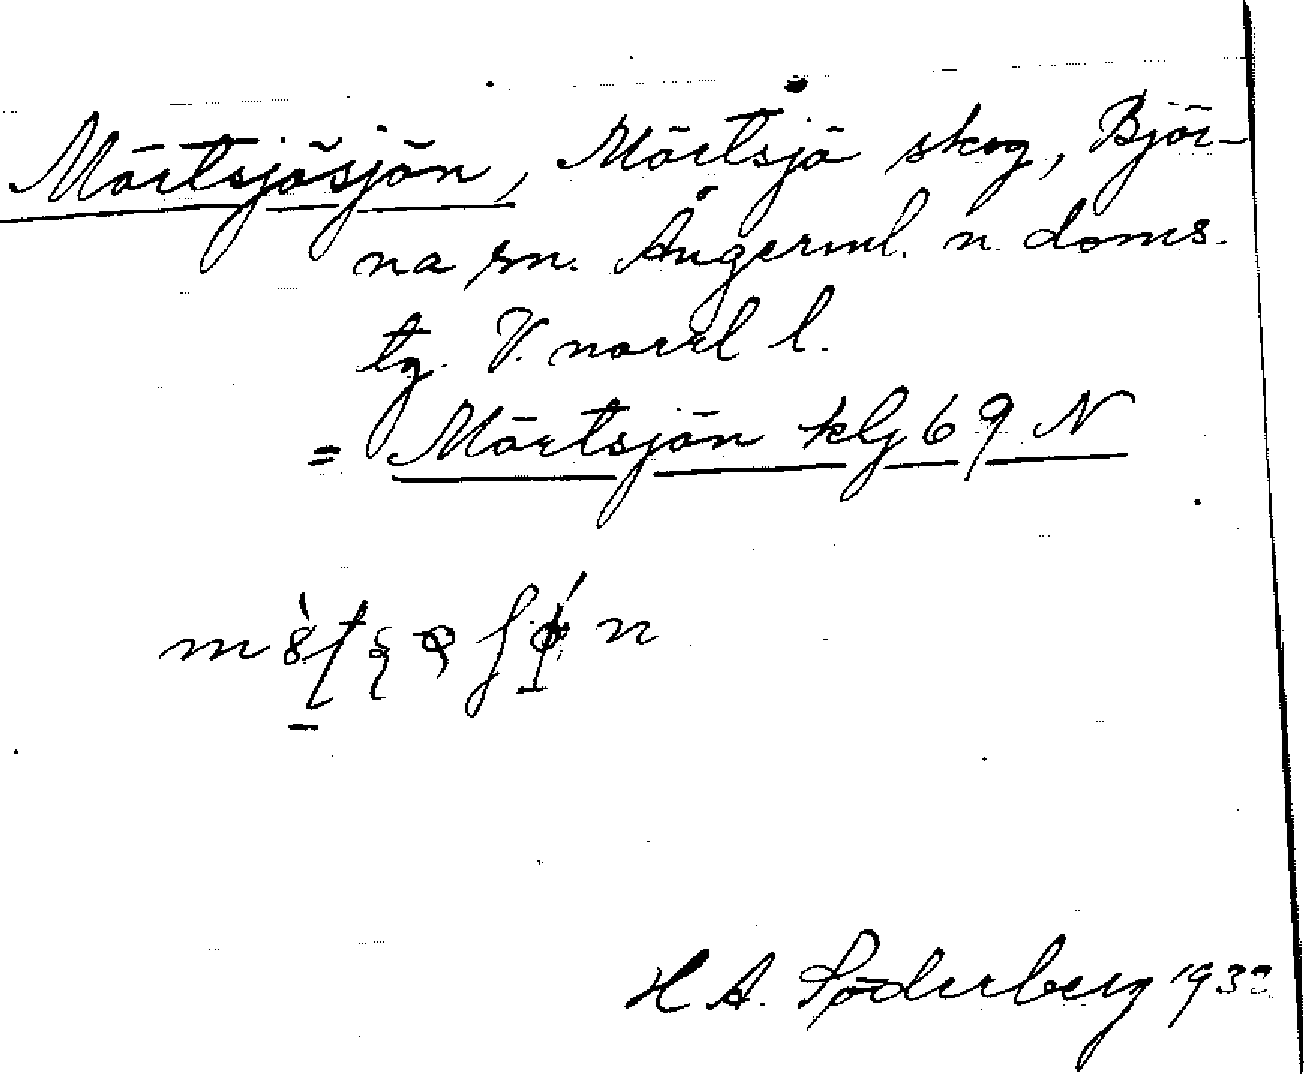 Mörtsjösjön, Mörtsjö skog, Björ-
na sn. Ångerml. n. doms.
tg. V. norrl l.
= Mörtsjön kbl 69 N
H A. Söderberg 193